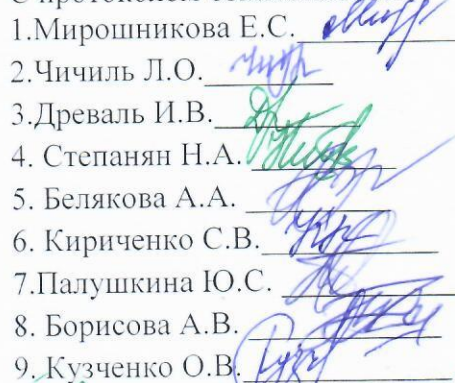 С протоколом
1.Мирошникова Е.С.
2.Чичиль Л.О.
3.Древаль И.В.
4. Степанян Н.А.
5. Белякова А.А.
6. Кириченко С.В.
7.Палушкина Ю.С.
8. Борисова А.В.
9. Кузченко О.В.